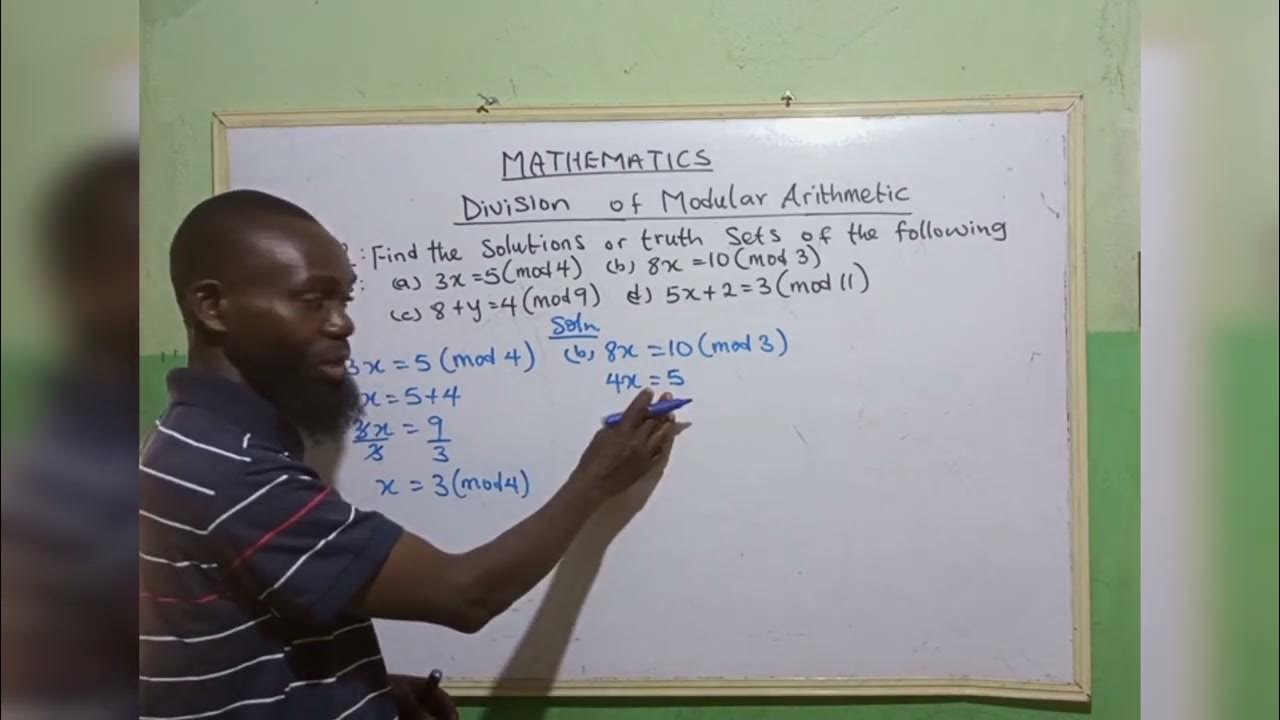 MATHEMATICS
Division of Modular Arithmetic
: Find the Solutions or truth Sets of the following
: (a) 3x = 5(mod 4) (b) 8x = 10(mod 3)
(c) 8 + y = 4(mod 9) d) 5x + 2 = 3(mod 11)
Soln
3x = 5 (mod 4)
x = 5 + 4
3x/3 = 9/3
x = 3(mod 4)
(b) 8x = 10(mod 3)
4x = 5